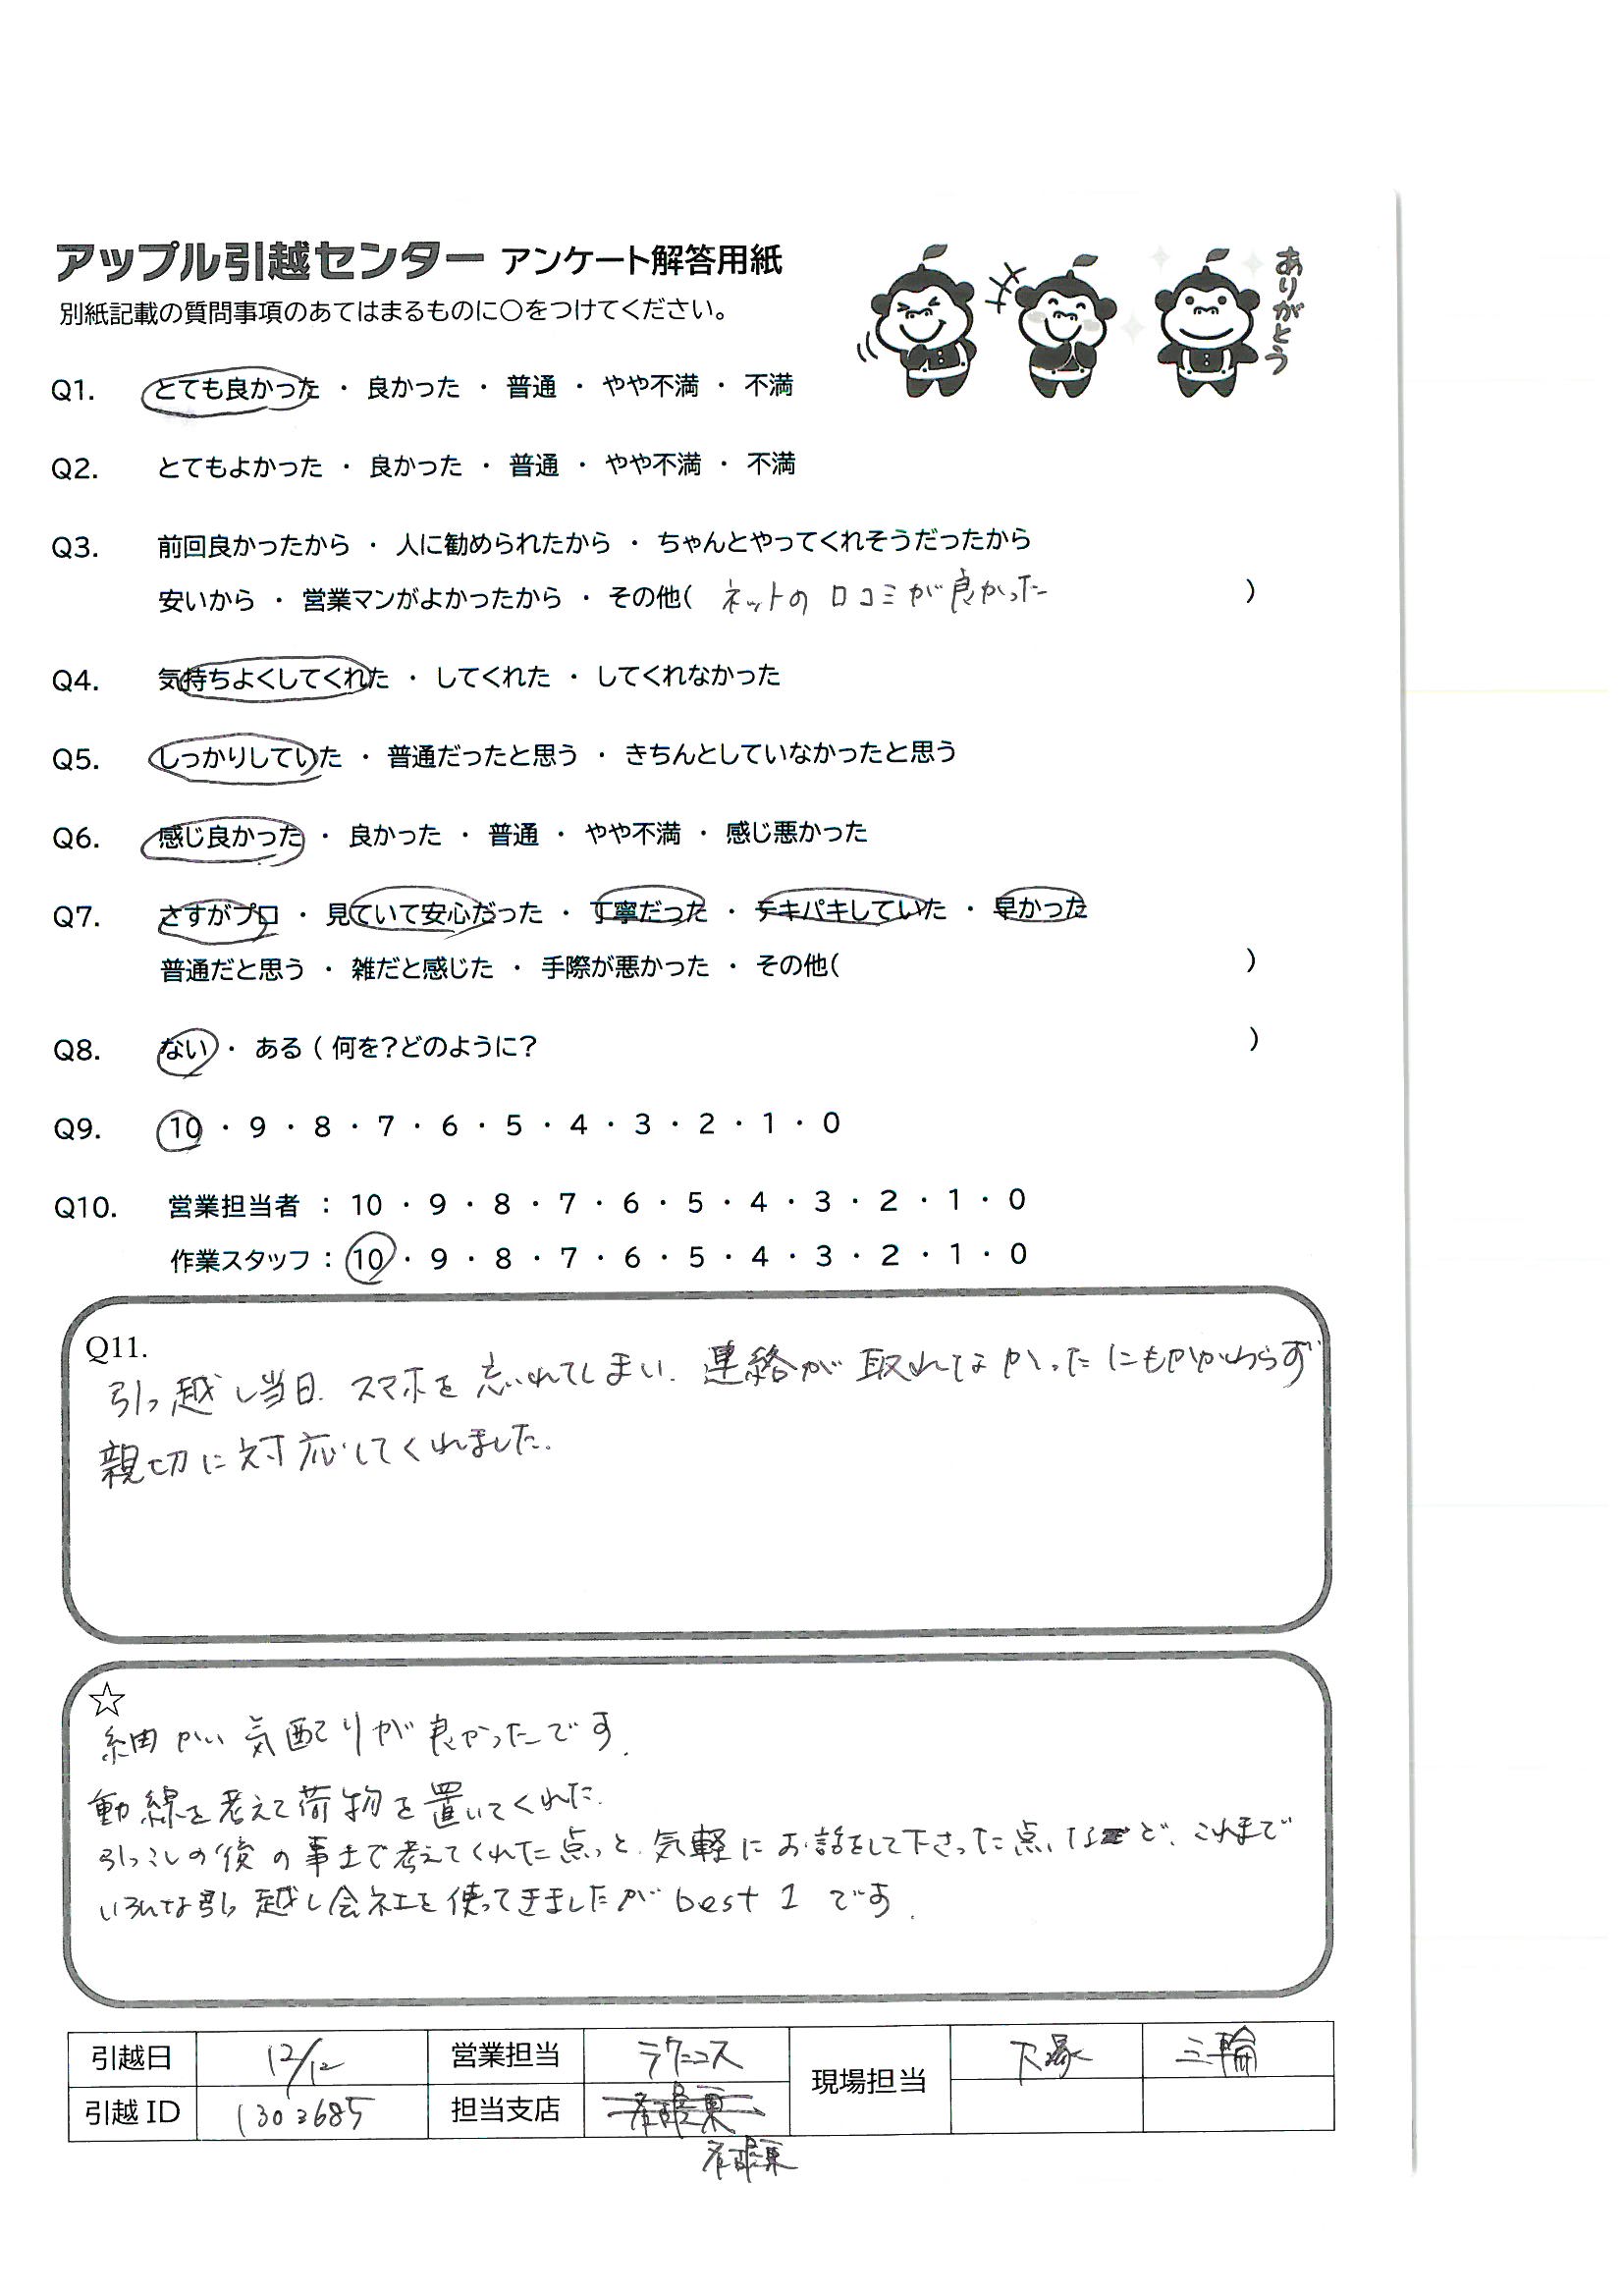 アップル引越センター アンケート解答用紙
ありがとう
別紙記載の質問事項のあてはまるものに○をつけてください。
Q1. とても良かった ・ 良かった ・ 普通 ・ やや不満 ・ 不満
Q2. とてもよかった ・ 良かった ・ 普通 ・ やや不満 ・ 不満
Q3. 前回良かったから ・ 人に勧められたから ・ ちゃんとやってくれそうだったから
安いから ・ 営業マンがよかったから ・ その他( ネットの口コミが良かった )
Q4. 気持ちよくしてくれた ・ してくれた ・ してくれなかった
Q5. しっかりしていた ・ 普通だったと思う ・ きちんとしていなかったと思う
Q6. 感じ良かった ・ 良かった ・ 普通 ・ やや不満 ・ 感じ悪かった
Q7. さすがプロ ・ 見ていて安心だった ・ 丁寧だった ・ テキパキしていた ・ 早かった
普通だと思う ・ 雑だと感じた ・ 手際が悪かった ・ その他( )
Q8. ない ・ ある ( 何を?どのように? )
Q9. 10 ・ 9 ・ 8 ・ 7 ・ 6 ・ 5 ・ 4 ・ 3 ・ 2 ・ 1 ・ 0
Q10. 営業担当者 : 10 ・ 9 ・ 8 ・ 7 ・ 6 ・ 5 ・ 4 ・ 3 ・ 2 ・ 1 ・ 0
作業スタッフ : 10 ・ 9 ・ 8 ・ 7 ・ 6 ・ 5 ・ 4 ・ 3 ・ 2 ・ 1 ・ 0
Q11.
引っ越し当日、スマホを忘れてしまい、連絡が取れてなかったにもかかわらず
親切に対応してくれました。
☆
細かい気配りが良かったです。
動線を考えて荷物を置いてくれた。
引っこしの後の事まで考えてくれた点っと、気軽にお話をして下さった点、など、これまで
いろんな引っ越し会社を使ってきましたが best 1 です。
引越日 12/12 営業担当 ラクニコス 現場担当 下塚 三輪
引越ID 1303685 担当支店